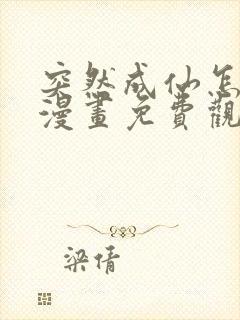 突然成仙怎
漫畫免費觀
梁倩